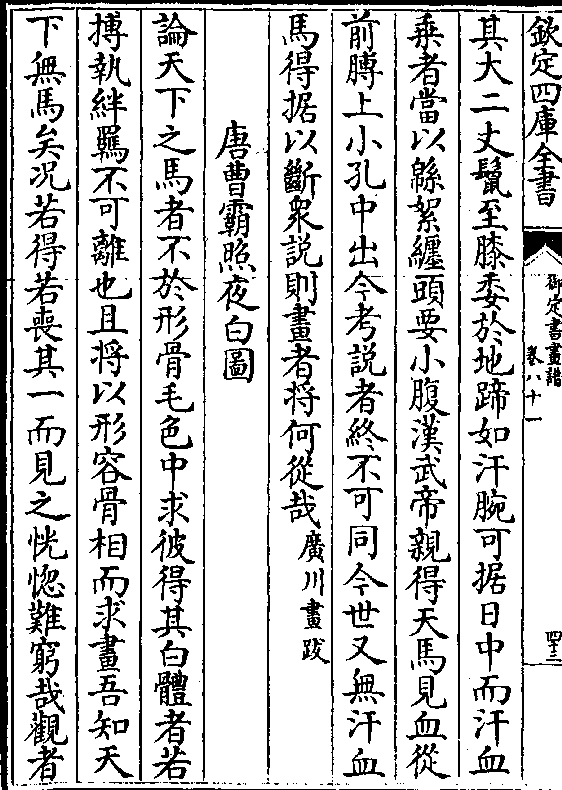 欽定四庫全書
御定書畫譜
卷八十一
四十三
其大二丈鬛至膝委於地蹄如汗腕可据日中而汗血
乘者當以緜絮纒頭要小腹漢武帝親得天馬見血從
前膊上小孔中出今考説者終不可同今世又無汗血
馬得据以斷衆説則畫者將何從哉廣川畫跋
唐曹霸照夜白圖
論天下之馬者不於形骨毛色中求彼得其白體者若
搏執絆羈不可離也且將以形容骨相而求畫吾知天
下無馬矣况若得若喪其一而見之恍惚難窮哉觀者